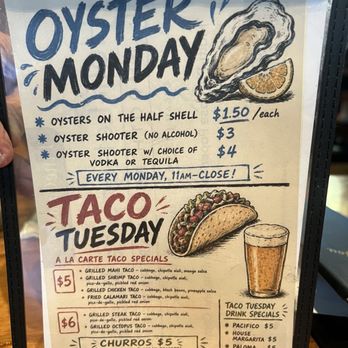 OYSTER
MONDAY
* OYSTERS ON THE HALF SHELL $1.50/each
* OYSTER SHOOTER (NO ALCOHOL) $3
* OYSTER SHOOTER W/ CHOICE OF $4
VODKA OR TEQUILA
EVERY MONDAY, 11AM-CLOSE!
TACO
TUESDAY
A LA CARTE TACO SPECIALS
$5
• GRILLED MAHI TACO - cabbage, chipotle aioli, mango salsa
• GRILLED SHRIMP TACO - cabbage, chipotle aioli,
pico-de-gallo, pickled red onion
• GRILLED CHICKEN TACO - cabbage, black beans, pineapple salsa
• FRIED CALAMARI TACO - cabbage, chipotle aioli,
pico-de-gallo, pickled red onion
$6
• GRILLED STEAK TACO - cabbage, chipotle aioli,
pico-de-gallo, pickled red onion
• GRILLED OCTOPUS TACO - cabbage, chipotle aioli,
pico-de-gallo, pickled red onion
CHURROS $5
TACO TUESDAY
DRINK SPECIALS
• PACIFICO $5
• HOUSE
MARGARITA $5
• PALOMA